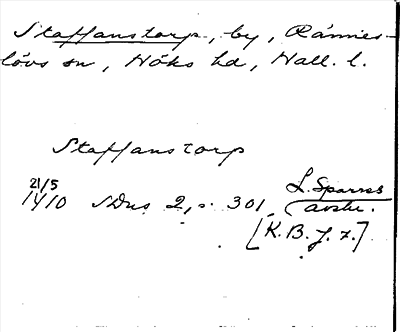 Staffanstorp, by, Rännes-
lövs sn, Höks hd, Hall. l.
Staffanstorp
21/5
1410 SDns 2, s. 301. L. Sparres
avskr.
[K.B. f. 7.]